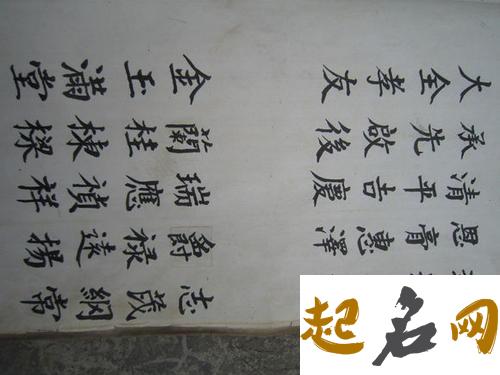 大全孝友
承先啟後
清平吉慶
恩膏惠澤
金玉滿堂
蘭桂棟樑
瑞應禎祥
爵祿遠揚
志茂綱常
起名网